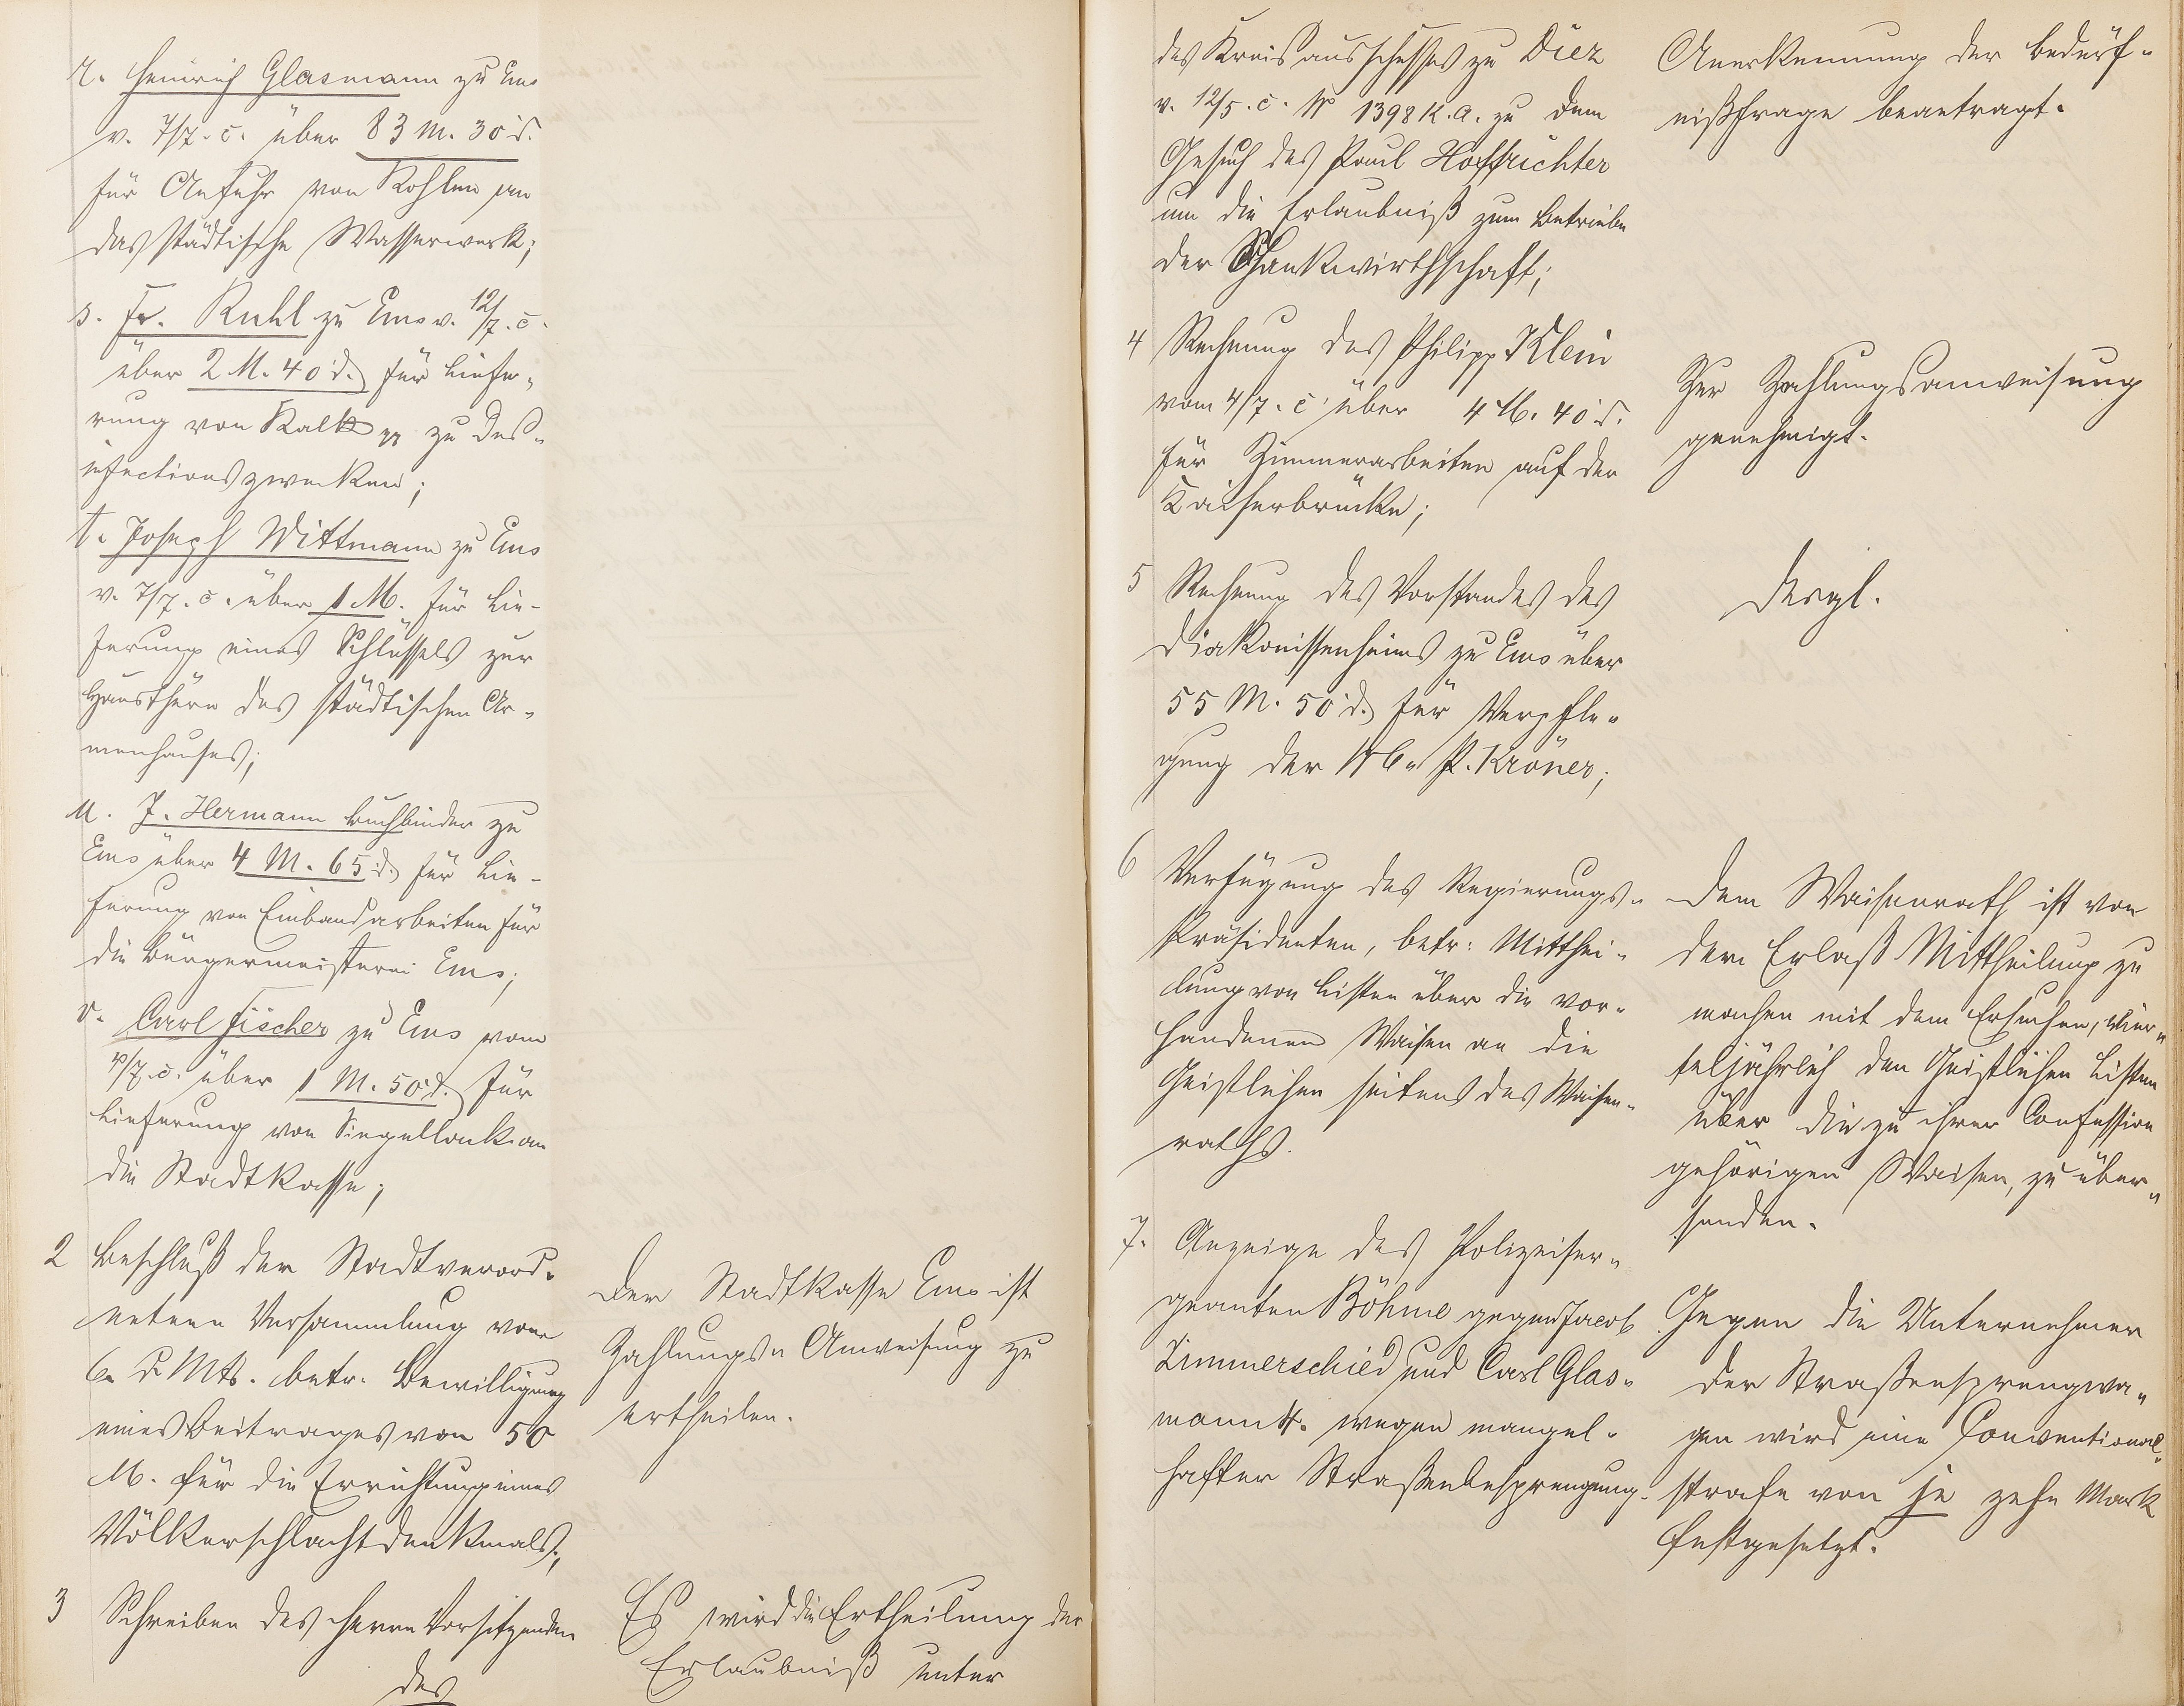 r. Heinrich Glasmann zu Ems
v. 7/7. c. über 83 M. 30 d.
für Anfuhr von Kohlen an
das städtische Wasserwerk;
s. Fr. Ruhl zu Ems v. 12/7. c.
über 2 M. 40 d. für Liefe-
rung von Kalk pp zu Des-
infectionszwecken;
t. Joseph Wittmann zu Ems
v. 7/7. c. über 1 M. für Lie-
ferung eines Schlüssels zur
Hausthüre des städtischen Ar-
menhauses;
u. J. Hermann Buchbinder zu
Ems über 4 M. 65 d. für Lie-
ferung von Einbandarbeiten für
die Bürgermeisterei Ems;
v. Carl Fischer zu Ems vom
/7. c. über 1 M. 50 d. für
Lieferung von Siegellack an
die Stadtkasse;
2 Beschluß der Stadtverord-
neten Versammlung vom
6. d. Mts. betr. Bewilligung
eines Beitrages von 50
M. für die Errichtung eines
Völkerschlachtdenkmals;
3 Schreiben des Herrn Vorsitzenden
des
Der Stadtkasse Ems ist
Zahlungs-Anweisung zu
ertheilen.
Es wird die Ertheilung der
Erlaubniß unter
des Kreisausschusses zu Diez
v. 12/5. c. No 1398 K. A. zu dem
Gesuch des Paul Hoffrichter
um die Erlaubniß zum Betriebe
der Schankwirthschaft;
4 Rechnung des Philipp Klein
vom 4/7. c. über 4 M. 40 d.
für Zimmerarbeiten auf der
Kaiserbrücke;
5 Rechnung des Vorstandes des
Diakonissenheims zu Ems über
55 M. 50 d. für Verpfle-
gung der P. Kröner;
6 Verfügung des Regierungs-
Präsidenten, betr: Mitthei-
lung von Listen über die vor-
handenen Waisen an die
Geistlichen seitens des Waisen-
raths.
7. Anzeige des Polizeiser-
geanten Böhme gegen Jacob
Zimmerschied und Carl Glas-
mann wegen mangel-
hafter Straßenbesprengung.
Anerkennung der Bedürf-
nißfrage beantragt.
Zur Zahlungsanweisung
genehmigt.
Desgl.
Dem Waisenrath ist von
dem Erlaß Mittheilung zu
machen mit dem Ersuchen, vier-
teljährlich den Geistlichen Listen
über die zu ihrer Confession
gehörigen Waisen, zu über-
senden.
Gegen die Unternehmer
der Straßensprengwa-
gen wird eine Conventional-
strafe von je zehn Mark
festgesetzt.